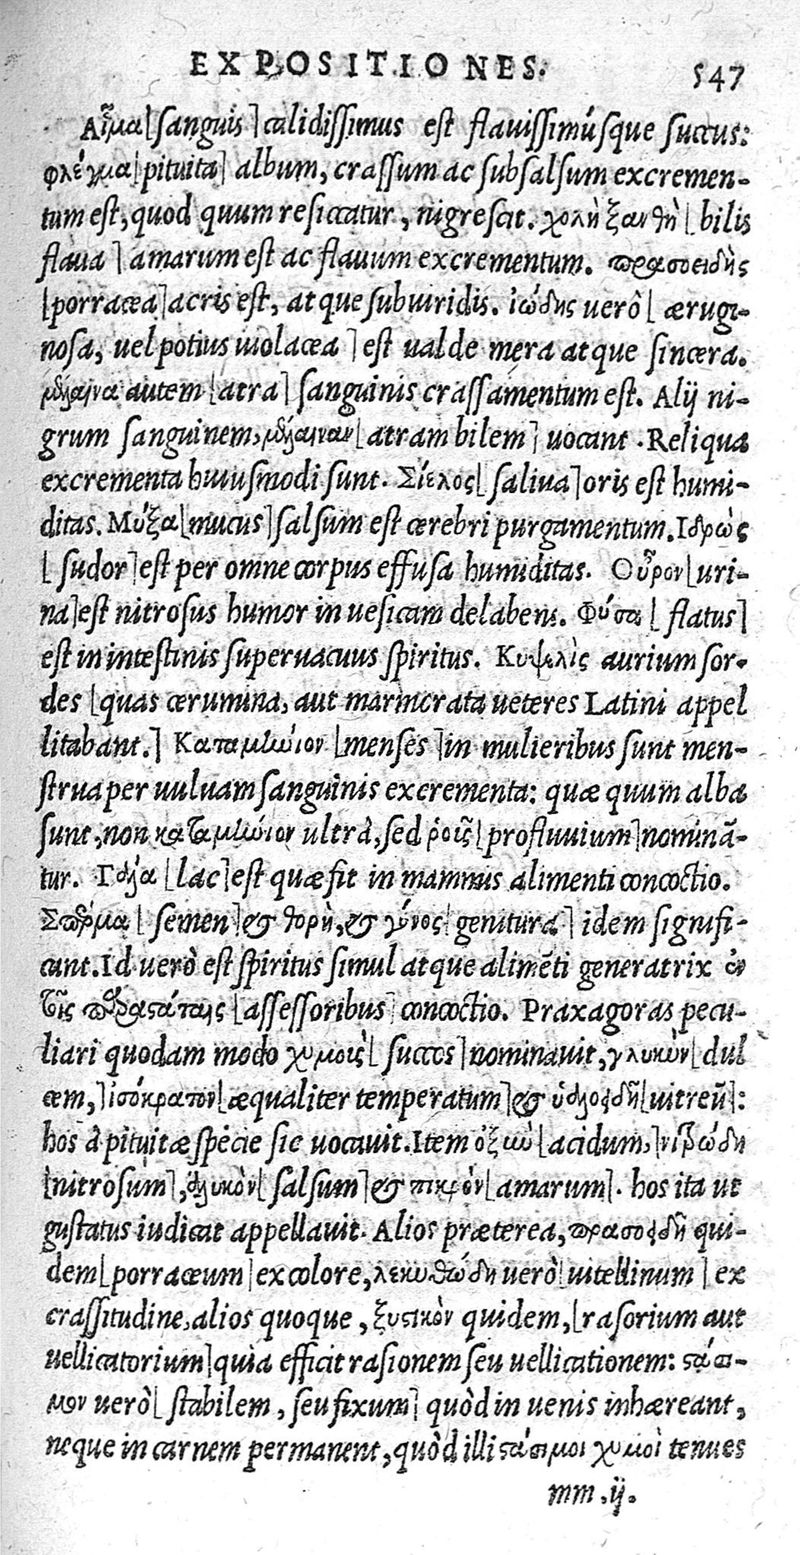 EXPOSITIONES. 547
Αἷμα[sanguis]calidissimus est flauissimúsque succus:
φλέγμα[pituita] album, crassum ac subsalsum excremen-
tum est, quod quum resiccatur, nigrescit. χολὴ ξανθὴ[bilis
flaua] amarum est ac flauum excrementum. πρασοειδὴς
[porracea]acris est, atque subuiridis. ἰώδης uerò[ærugi-
nosa, uel potius uiolacea]est ualde mera atque sincera.
μέλαινα autem [atra] sanguinis crassamentum est. Alij ni-
grum sanguinem, μέλαιναν[atram bilem] uocant. Reliqua
excrementa huiusmodi sunt. Σίελος[saliua]oris est humi-
ditas. Μύξα[mucus]salsum est cerebri purgamentum. Ιδρὼς
[sudor]est per omne corpus effusa humiditas. Οὖρον[uri-
na]est nitrosus humor in uesicam delabens. Φύσα [flatus]
est in intestinis superuacuus spiritus. Κυψελὶς aurium sor-
des [quas cerumina, aut marmorata ueteres Latini appel
litabant.] Καταμήνιον [menses]in mulieribus sunt men-
strua per uuluam sanguinis excrementa: quæ quum alba
sunt, non καταμήνιον ultrà, sed ῥοῦς[profluuium]nominā-
tur. Γάλα [lac]est quæ fit in mammis alimenti concoctio.
Σπέρμα[semen]& θορὴ, & γόνος[genitura] idem signifi-
cant. Id uerò est spiritus simul atque alimēti generatrix ἐν
τοῖς παραστάταις [assessoribus] concoctio. Praxagoras pecu-
liari quodam modo χυμοὺς[succos]nominauit, γλυκὺν[dul
cem,]ἰσόκρατον[æqualiter temperatum]& ὑαλοειδῆ[uitreū]:
hos à pituitæ specie sic uocauit. Item ὀξὺν[acidum,]νιτρώδη
[nitrosum], ἁλυκὸν[salsum]& πικρὸν[amarum]. hos ita ut
gustatus iudicat appellauit. Alios præterea, πρασοειδῆ qui-
dem[porraceum]ex colore, λεκιθώδη uerò[uitellinum] ex
crassitudine, alios quoque, ξυστικὸν quidem, [rasorium aut
uellicatorium]quia efficit rasionem seu uellicationem: στάσι-
μον uerò[stabilem, seu fixum] quòd in uenis inhæreant,
neque in carnem permanent, quòd illi στάσιμοι χυμοὶ tenues
mm .ij.